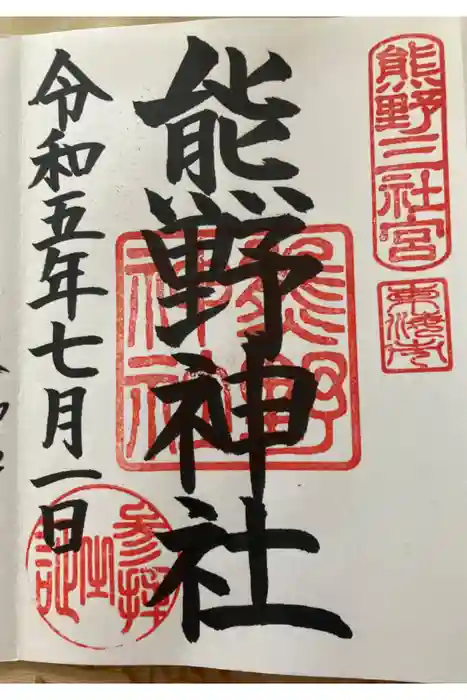 熊野三社宮
東海市
熊野神社
熊野
神社
令和五年七月一日
参拝
之
記